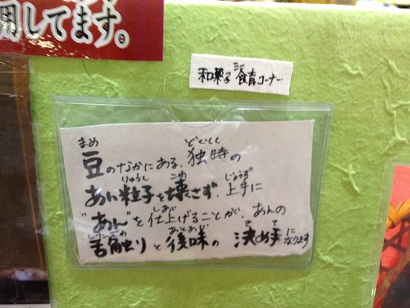 用してます。
和菓子 食育コーナー
豆のなかにある、独時の
あん粒子を壊さず、上手に
"あん"を仕上げることが、あんの
舌触りと後味の決め手になります